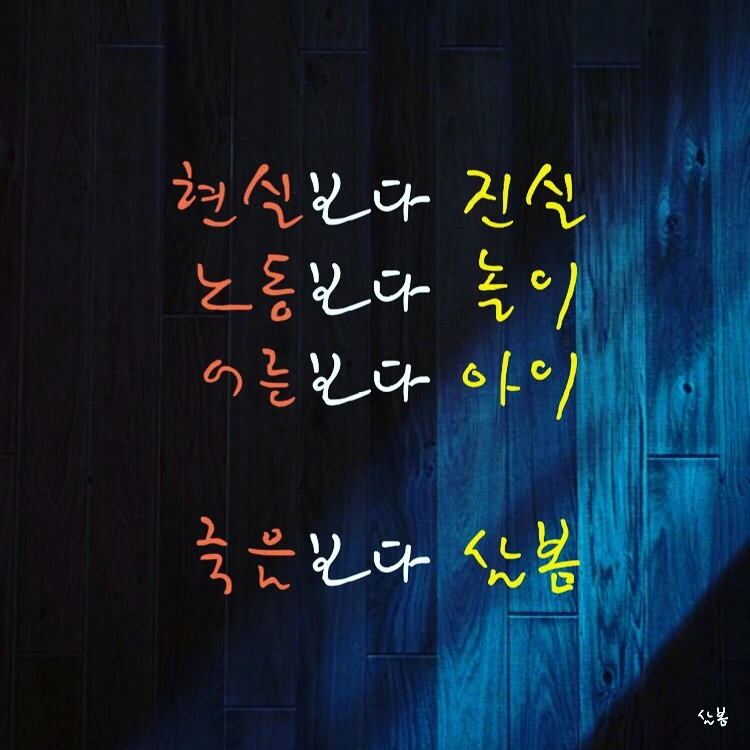 현실보다 진실
노동보다 놀이
어른보다 아이
죽음보다 삶봄
삶봄